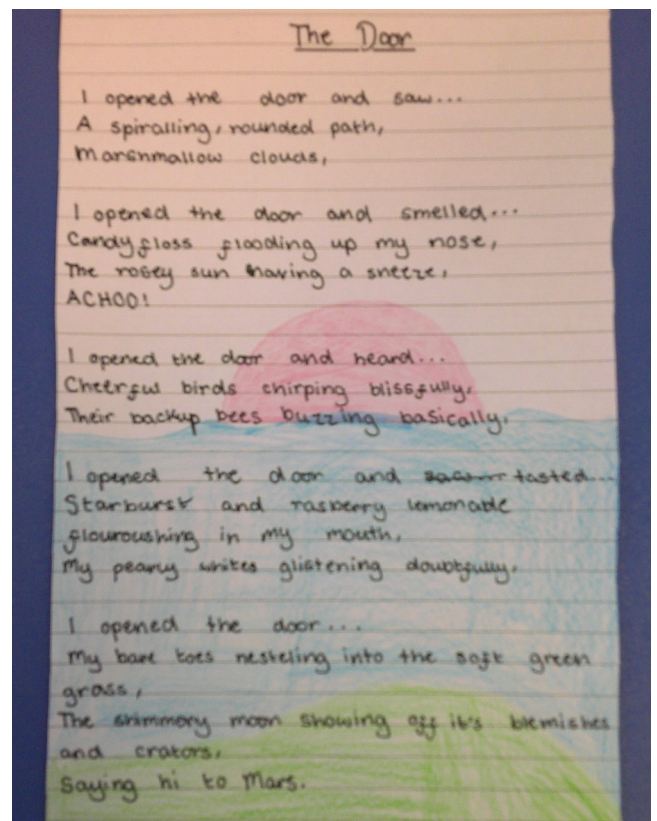 The Door
I opened the door and saw...
A spiralling, rounded path,
Marshmallow clouds,
I opened the door and smelled...
Candyfloss flooding up my nose,
The rosey sun having a sneeze,
ACHOO!
I opened the door and heard...
Cheerful birds chirping blissfully,
Their backup bees buzzing basically.
I opened the door and tasted...
Starburst and rasberry lemonade
flouroushing in my mouth,
My pearly whites glistening doubtfully.
I opened the door...
My bare toes nesteling into the soft green
grass,
The shimmery moon showing off it's blemishes
and crators,
Saying hi to Mars.